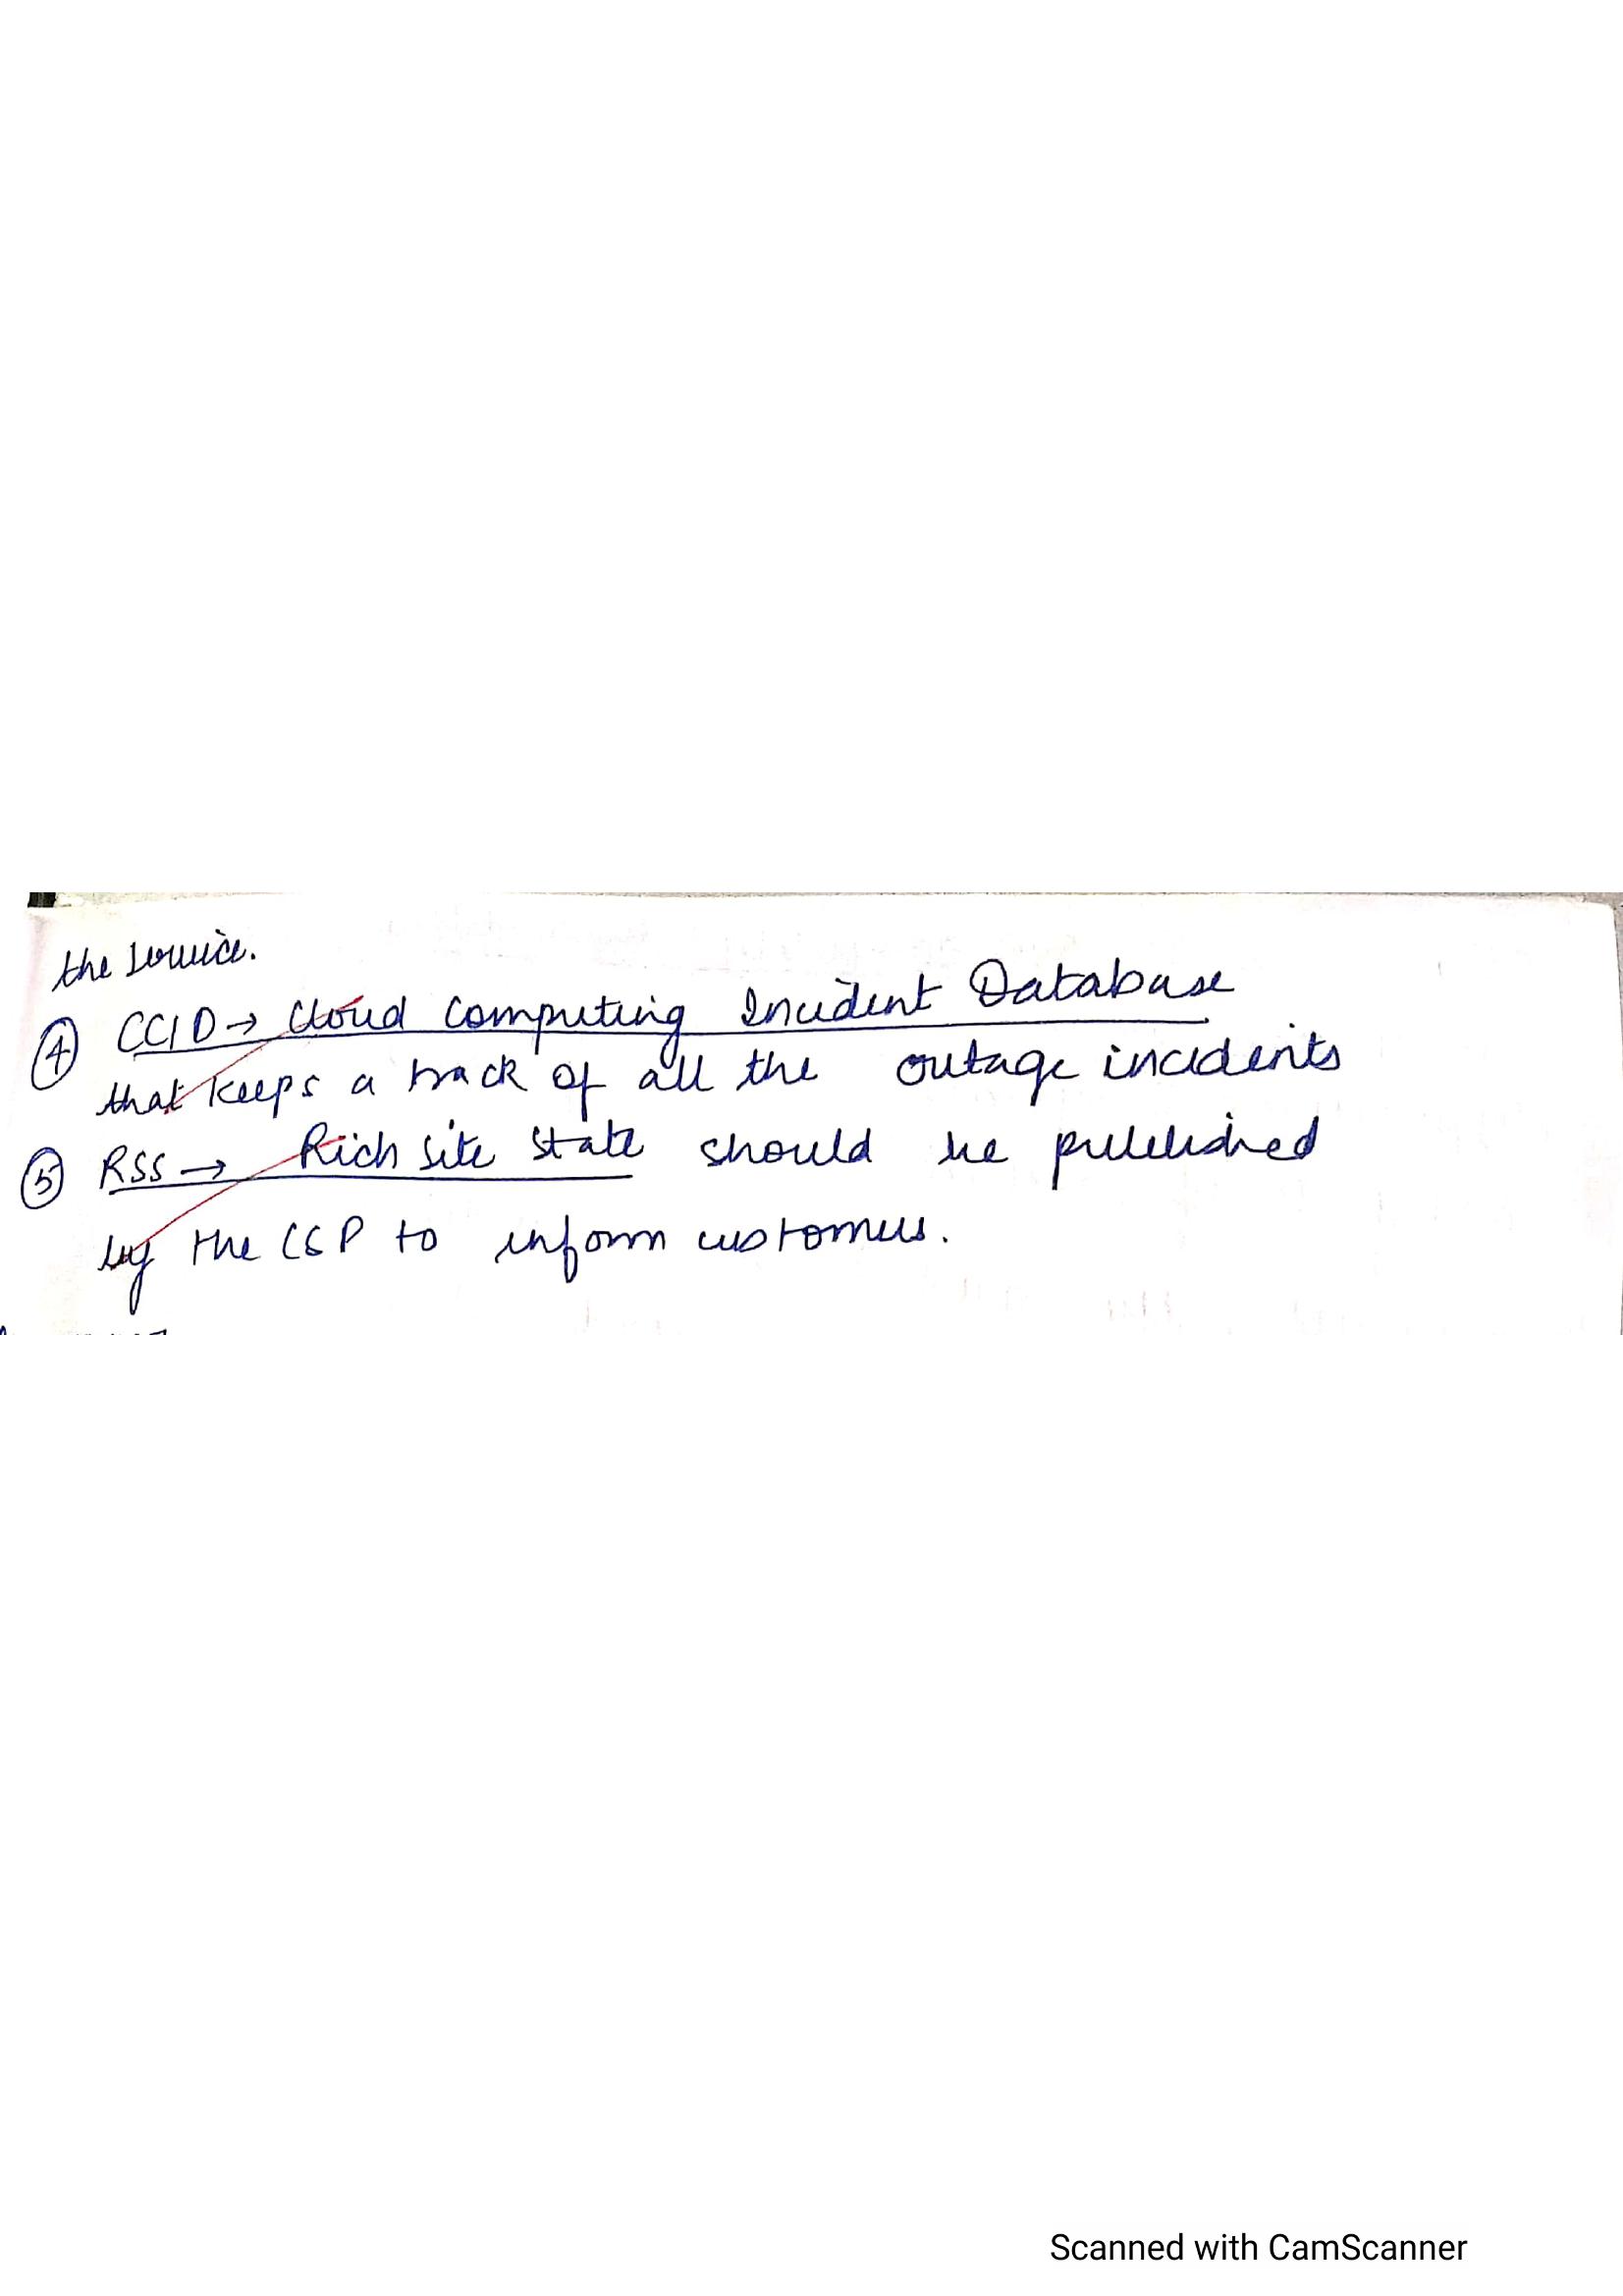 the service.
④ CCID → Cloud Computing Incident Database
that keeps a track of all the outage incidents
⑤ RSS → Rich Site State should be published
by the CSP to inform customers.
Scanned with CamScanner